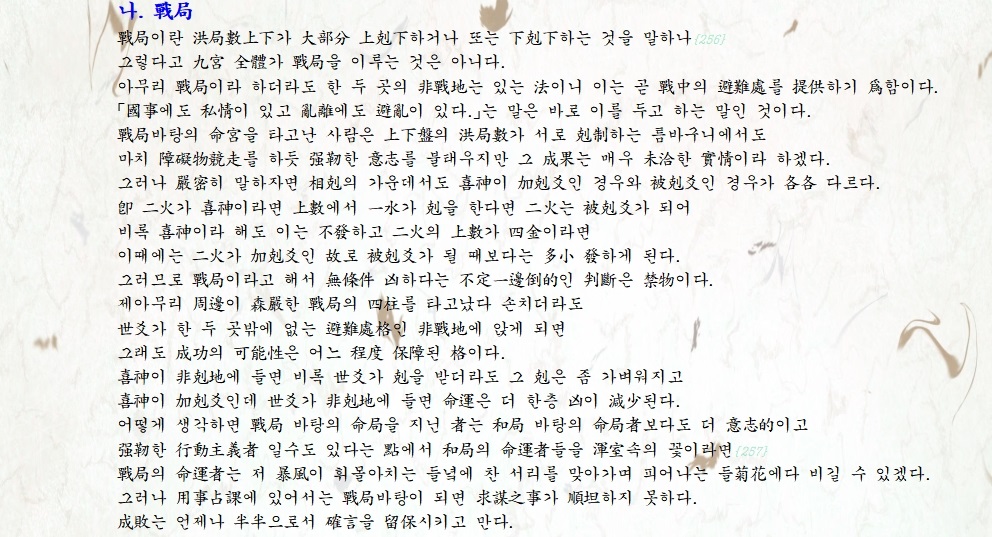 나. 戰局
戰局이란 洪局數上下가 大部分 上剋下하거나 또는 下剋下하는 것을 말하나{256}
그렇다고 九宮 全體가 戰局을 이루는 것은 아니다.
아무리 戰局이라 하더라도 한 두 곳의 非戰地는 있는 法이니 이는 곧 戰中의 避難處를 提供하기 爲함이다.
「國事에도 私情이 있고 亂離에도 避亂이 있다.」는 말은 바로 이를 두고 하는 말인 것이다.
戰局바탕의 命宮을 타고난 사람은 上下盤의 洪局數가 서로 剋制하는 틈바구니에서도
마치 障礙物競走를 하듯 强韌한 意志를 불태우지만 그 成果는 매우 未洽한 實情이라 하겠다.
그러나 嚴密히 말하자면 相剋의 가운데서도 喜神이 加剋爻인 경우와 被剋爻인 경우가 各各 다르다.
卽 二火가 喜神이라면 上數에서 一水가 剋을 한다면 二火는 被剋爻가 되어
비록 喜神이라 해도 이는 不發하고 二火의 上數가 四金이라면
이때에는 二火가 加剋爻인 故로 被剋爻가 될 때보다는 多小 發하게 된다.
그러므로 戰局이라고 해서 無條件 凶하다는 不定一邊倒的인 判斷은 禁物이다.
제아무리 周邊이 森嚴한 戰局의 四柱를 타고났다 손치더라도
世爻가 한 두 곳밖에 없는 避難處格인 非戰地에 앉게 되면
그래도 成功의 可能性은 어느 程度 保障된 格이다.
喜神이 非剋地에 들면 비록 世爻가 剋을 받더라도 그 剋은 좀 가벼워지고
喜神이 加剋爻인데 世爻가 非剋地에 들면 命運은 더 한층 凶이 減少된다.
어떻게 생각하면 戰局 바탕의 命局을 지닌 者는 和局 바탕의 命局者보다도 더 意志的이고
强韌한 行動主義者 일수도 있다는 點에서 和局의 命運者들을 渾室속의 꽃이라면{257}
戰局의 命運者는 저 暴風이 휘몰아치는 들녘에 찬 서리를 맞아가며 피어나는 들菊花에다 비길 수 있겠다.
그러나 用事占課에 있어서는 戰局바탕이 되면 求謀之事가 順坦하지 못하다.
成敗는 언제나 半半으로서 確言을 留保시키고 만다.